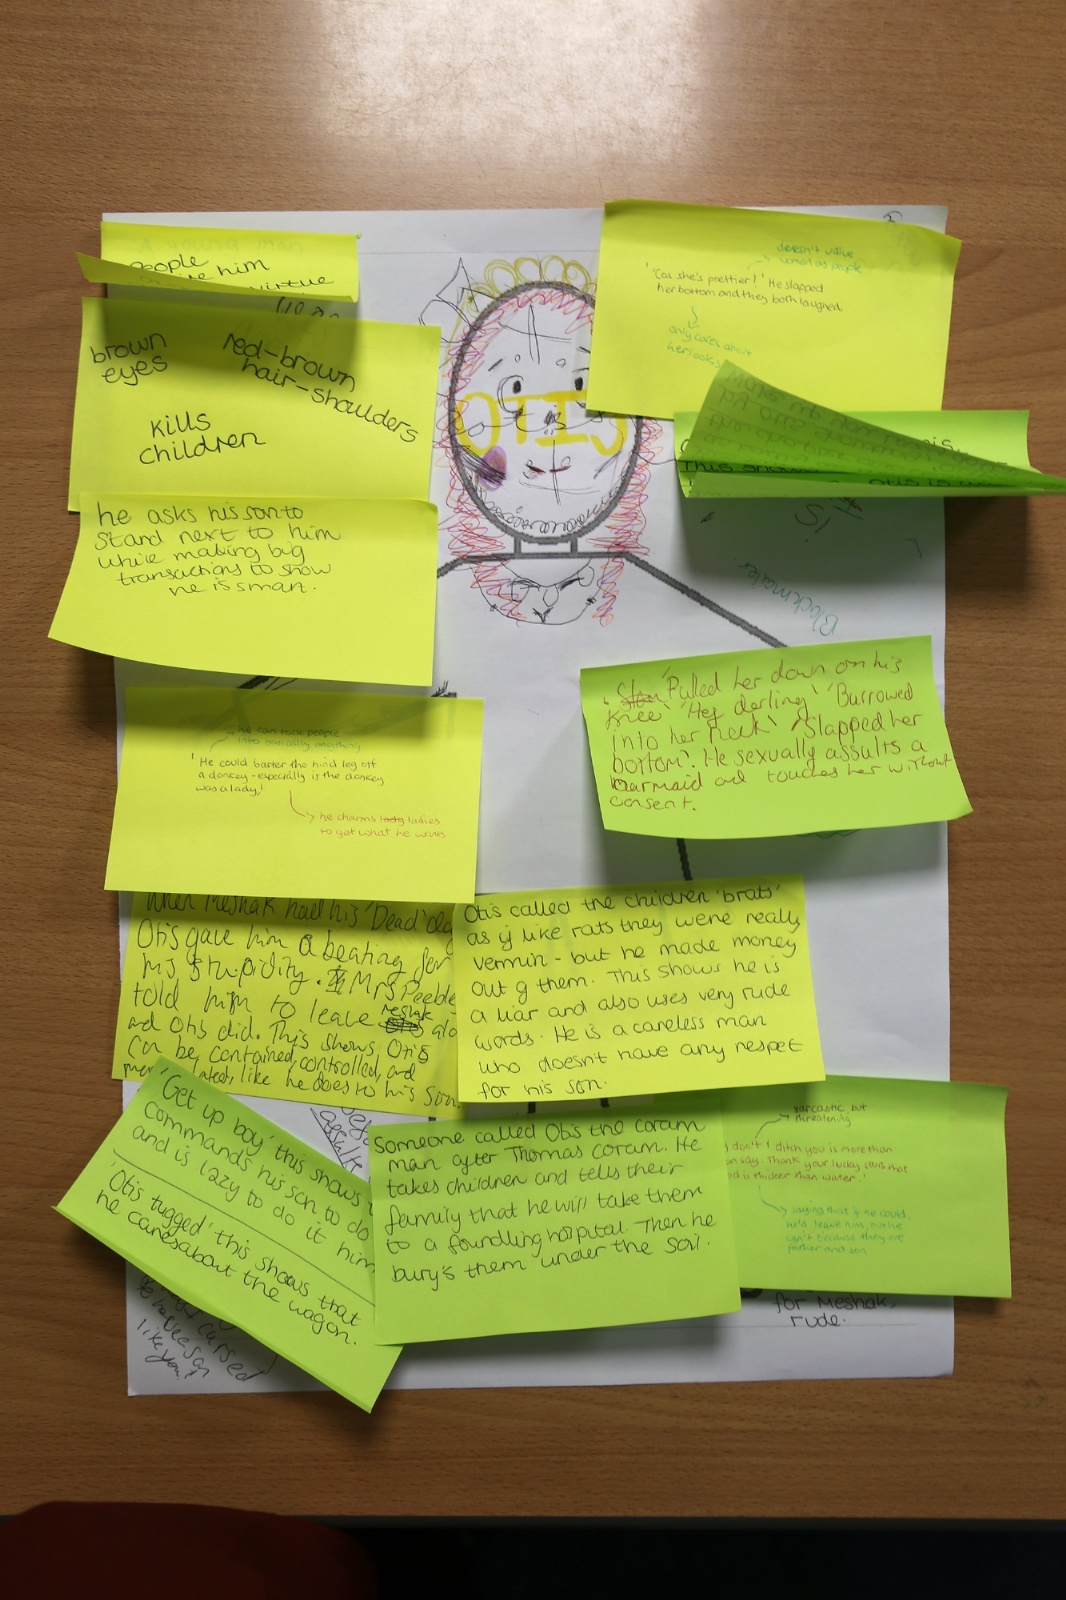 A young man
people
him
virtue
brown
eyes
red-brown
hair-shoulders
kills
children
he asks his son to
stand next to him
while making big
transactions to show
he is smart.
OTIS
doesn't value
women as people
'Cas she's prettier!' He slapped
her bottom and they both laughed.
only cares about
her looks
This
Otis is
is
Blackmailer
'Pulled her down on his
knee' 'Hey darling' 'Burrowed
into her neck' 'Slapped her
bottom'. He sexually assults a
barmaid and touches her without
consent.
he can talk people
into basically anything
'He could barter the hind leg off
a donkey - especially is the donkey
was a lady!'
he charms ladies
to get what he wants
When Meshak had his 'Dead dog
Otis gave him a beating for
his stupidity. Mrs Peeble
told him to leave meshak alo
and Otis did. This shows, Otis
can be contained, controlled, and
like he does to his son.
Otis called the children 'brats'
as if like rats they were really
vermin - but he made money
out of them. This shows he is
a liar and also uses very rude
words. He is a careless man
who doesn't have any respet
for his son.
'Get up boy' this shows
commands his son to do
and is lazy to do it him
'Otis tugged' this shows that
he cares about the wagon.
assults
Someone called Otis the coram
man after Thomas Coram. He
takes children and tells their
family that he will take them
to a foundling hospital. Then he
bury's them under the soil.
sarcastic but
threatening
don't I ditch you is more than
say. Thank your lucky stars that
is thicker than water.'
saying that if he could,
he'd leave him, but he
can't because they are
father and son
for Meshak,
rude.
cursed
son
like you!